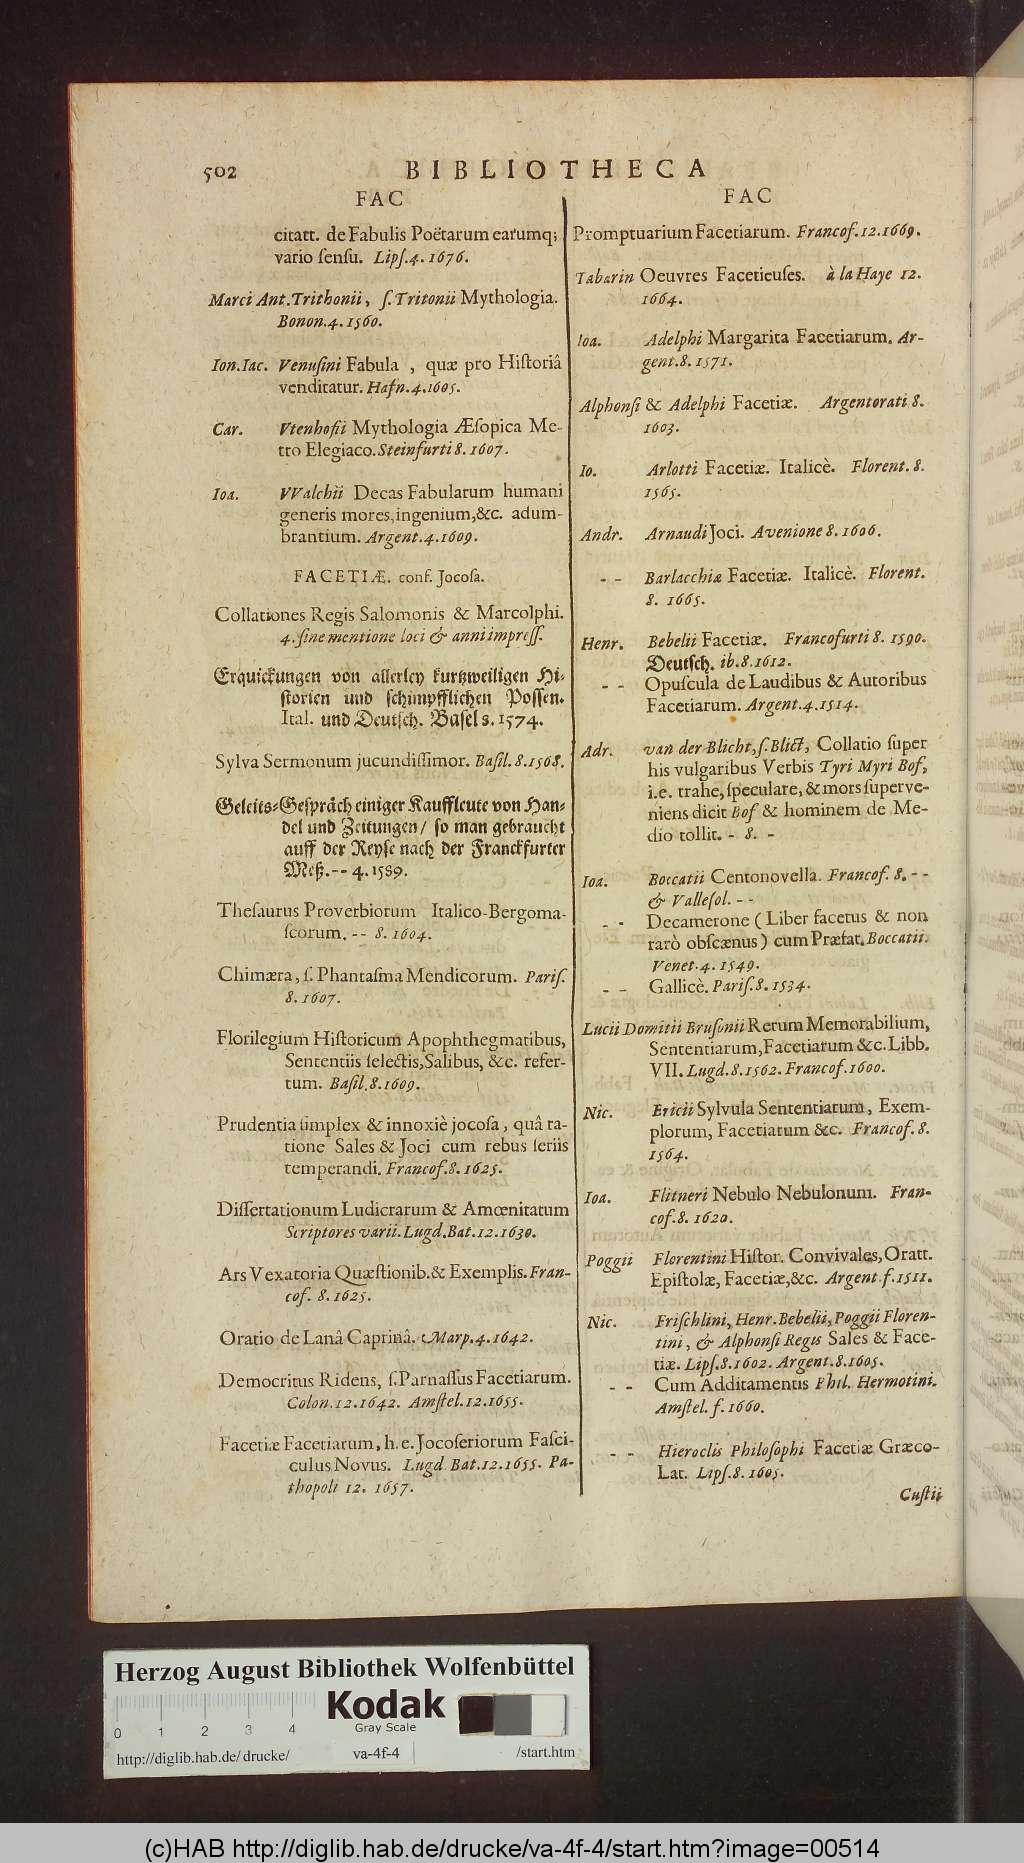 502
BIBLIOTHECA
FAC
citatt. de Fabulis Poëtarum earumq;
vario ſenſu. Lipſ.4. 1676.
Marci Ant. Trithonii, ſ. Tritonii Mythologia.
Bonon.4. 1560.
Ion. Iac. Venuſini Fabula, quæ pro Hiſtoriâ
venditatur. Hafn.4.1605.
Car. Vtenhofii Mythologia Æſopica Me-
tro Elegiaco. Steinfurti 8. 1607.
Ioa. VValchii Decas Fabularum humani
generis mores, ingenium, &c. adum-
brantium. Argent.4.1609.
FACETIÆ. conf. Jocoſa.
Collationes Regis Salomonis & Marcolphi.
4. ſine mentione loci & anni impreſſ.
Erquickungen von allerley kurtzweiligen Hi-
ſtorien und ſchimpfflichen Poſſen.
Ital. und Deutſch. Baſel 8. 1574.
Sylva Sermonum jucundiſſimor. Baſil.8.1568.
Geleits-Geſpräch einiger Kauffleute von Han-
del und Zeitungen / ſo man gebraucht
auff der Reyſe nach der Franckfurter
Meß. -- 4. 1589.
Theſaurus Proverbiorum Italico-Bergoma-
ſcorum. -- 8. 1604.
Chimæra, ſ. Phantaſma Mendicorum. Pariſ.
8. 1607.
Florilegium Hiſtoricum Apophthegmatibus,
Sententiis ſelectis, Salibus, &c. refer-
tum. Baſil.8.1609.
Prudentia ſimplex & innoxiè jocoſa, quâ ra-
tione Sales & Joci cum rebus ſeriis
temperandi. Francof.8. 1625.
Diſſertationum Ludicrarum & Amœnitatum
Scriptores varii. Lugd. Bat.12.1630.
Ars Vexatoria Quæſtionib. & Exemplis. Fran-
cof. 8. 1625.
Oratio de Lanâ Caprinâ. Marp.4.1642.
Democritus Ridens, ſ. Parnaſſus Facetiarum.
Colon.12.1642. Amſtel.12.1655.
Facetiæ Facetiarum, h.e. Jocoſeriorum Faſci-
culus Novus. Lugd. Bat.12.1655. Pa-
thopoli 12. 1657.
FAC
Promptuarium Facetiarum. Francof.12.1669.
Tabarin Oeuvres Facetieuſes. à la Haye 12.
1664.
Ioa. Adelphi Margarita Facetiarum. Ar-
gent.8.1571.
Alphonſi & Adelphi Facetiæ. Argentorati 8.
1603.
Io. Arlotti Facetiæ. Italicè. Florent. 8.
1565.
Andr. Arnaudi Joci. Avenione 8. 1606.
-- Barlacchiæ Facetiæ. Italicè. Florent.
8. 1665.
Henr. Bebelii Facetiæ. Francofurti 8. 1590.
Deutſch. ib.8.1612.
-- Opuſcula de Laudibus & Autoribus
Facetiarum. Argent.4.1514.
Adr. van der Blicht, ſ. Blict, Collatio ſuper
his vulgaribus Verbis Tyri Myri Bof,
i.e. trahe, ſpeculare, & mors ſuperve-
niens dicit Bof & hominem de Me-
dio tollit. - 8. -
Ioa. Boccatii Centonovella. Francof. 8. --
& Valleſol. --
-- Decamerone (Liber facetus & non
rarò obſcænus) cum Præfat. Boccatii.
Venet.4. 1549.
-- Gallicè. Pariſ.8. 1534.
Lucii Domitii Bruſonii Rerum Memorabilium,
Sententiarum, Facetiarum &c. Libb.
VII. Lugd.8.1562. Francof.1600.
Nic. Ericii Sylvula Sententiarum, Exem-
plorum, Facetiarum &c. Francof.8.
1564.
Ioa. Flitneri Nebulo Nebulonum. Fran-
cof.8. 1620.
Poggii Florentini Hiſtor. Convivales, Oratt.
Epiſtolæ, Facetiæ, &c. Argent.f.1511.
Nic. Friſchlini, Henr. Bebelii, Poggii Floren-
tini, & Alphonſi Regis Sales & Face-
tiæ. Lipſ.8.1602. Argent.8.1605.
-- Cum Additamentis Phil. Hermotini.
Amſtel. f. 1660.
-- Hieroclis Philoſophi Facetiæ Græco-
Lat. Lipſ.8. 1605.
Cuſtii
Herzog August Bibliothek Wolfenbüttel
0 1 2 3 4
Kodak
Gray Scale
http://diglib.hab.de/drucke/ va-4f-4 /start.htm
(c)HAB http://diglib.hab.de/drucke/va-4f-4/start.htm?image=00514